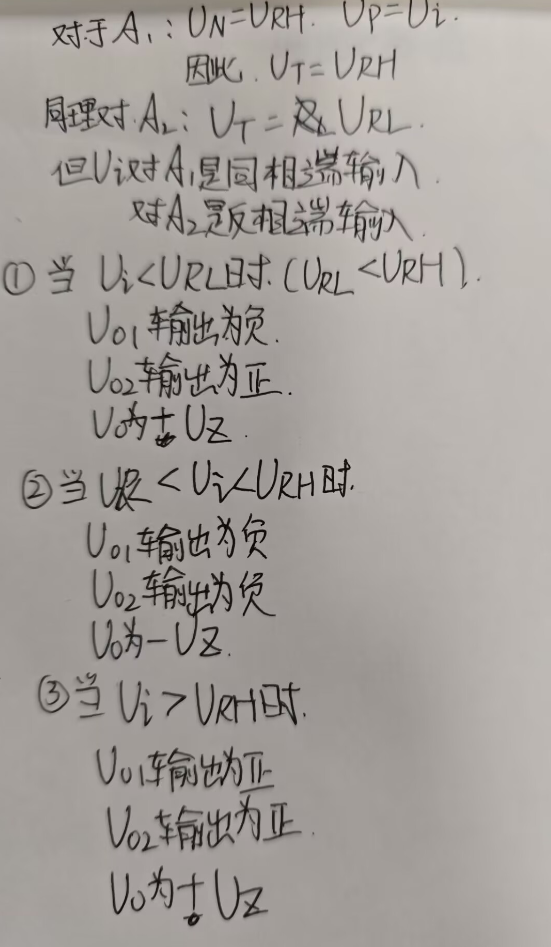 对于A₁：U_N=U_RH. U_P=U_i.
因此. U_T=U_RH
同理对.A₂：U_T=U_RL.
但U_i对A₁是同相端输入.
对A₂是反相端输入.
①当 U_i<U_RL时.(U_RL<U_RH).
U_O1输出为负.
U_O2输出为正.
U_O为+U_Z.
②当 <U_i<U_RH时.
U_O1输出为负
U_O2输出为负
U_O为-U_Z.
③当 U_i>U_RH时.
U_O1输出为正
U_O2输出为正.
U_O为+U_Z